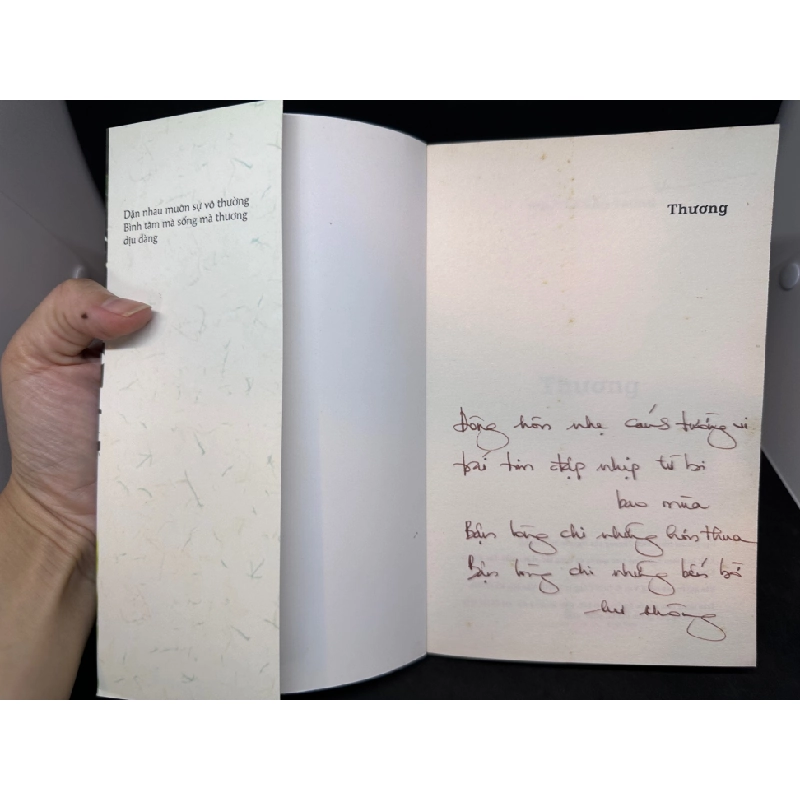 Dặn nhau muôn sự vô thường
Bình tâm mà sống mà thương
dịu dàng
Thương
Thương
Động hồn nhẹ cánh tường vi
trái tim đập nhịp từ bi
bao mùa
Bận lòng chi những hơn thua
Bận lòng chi những bến bờ
hư không